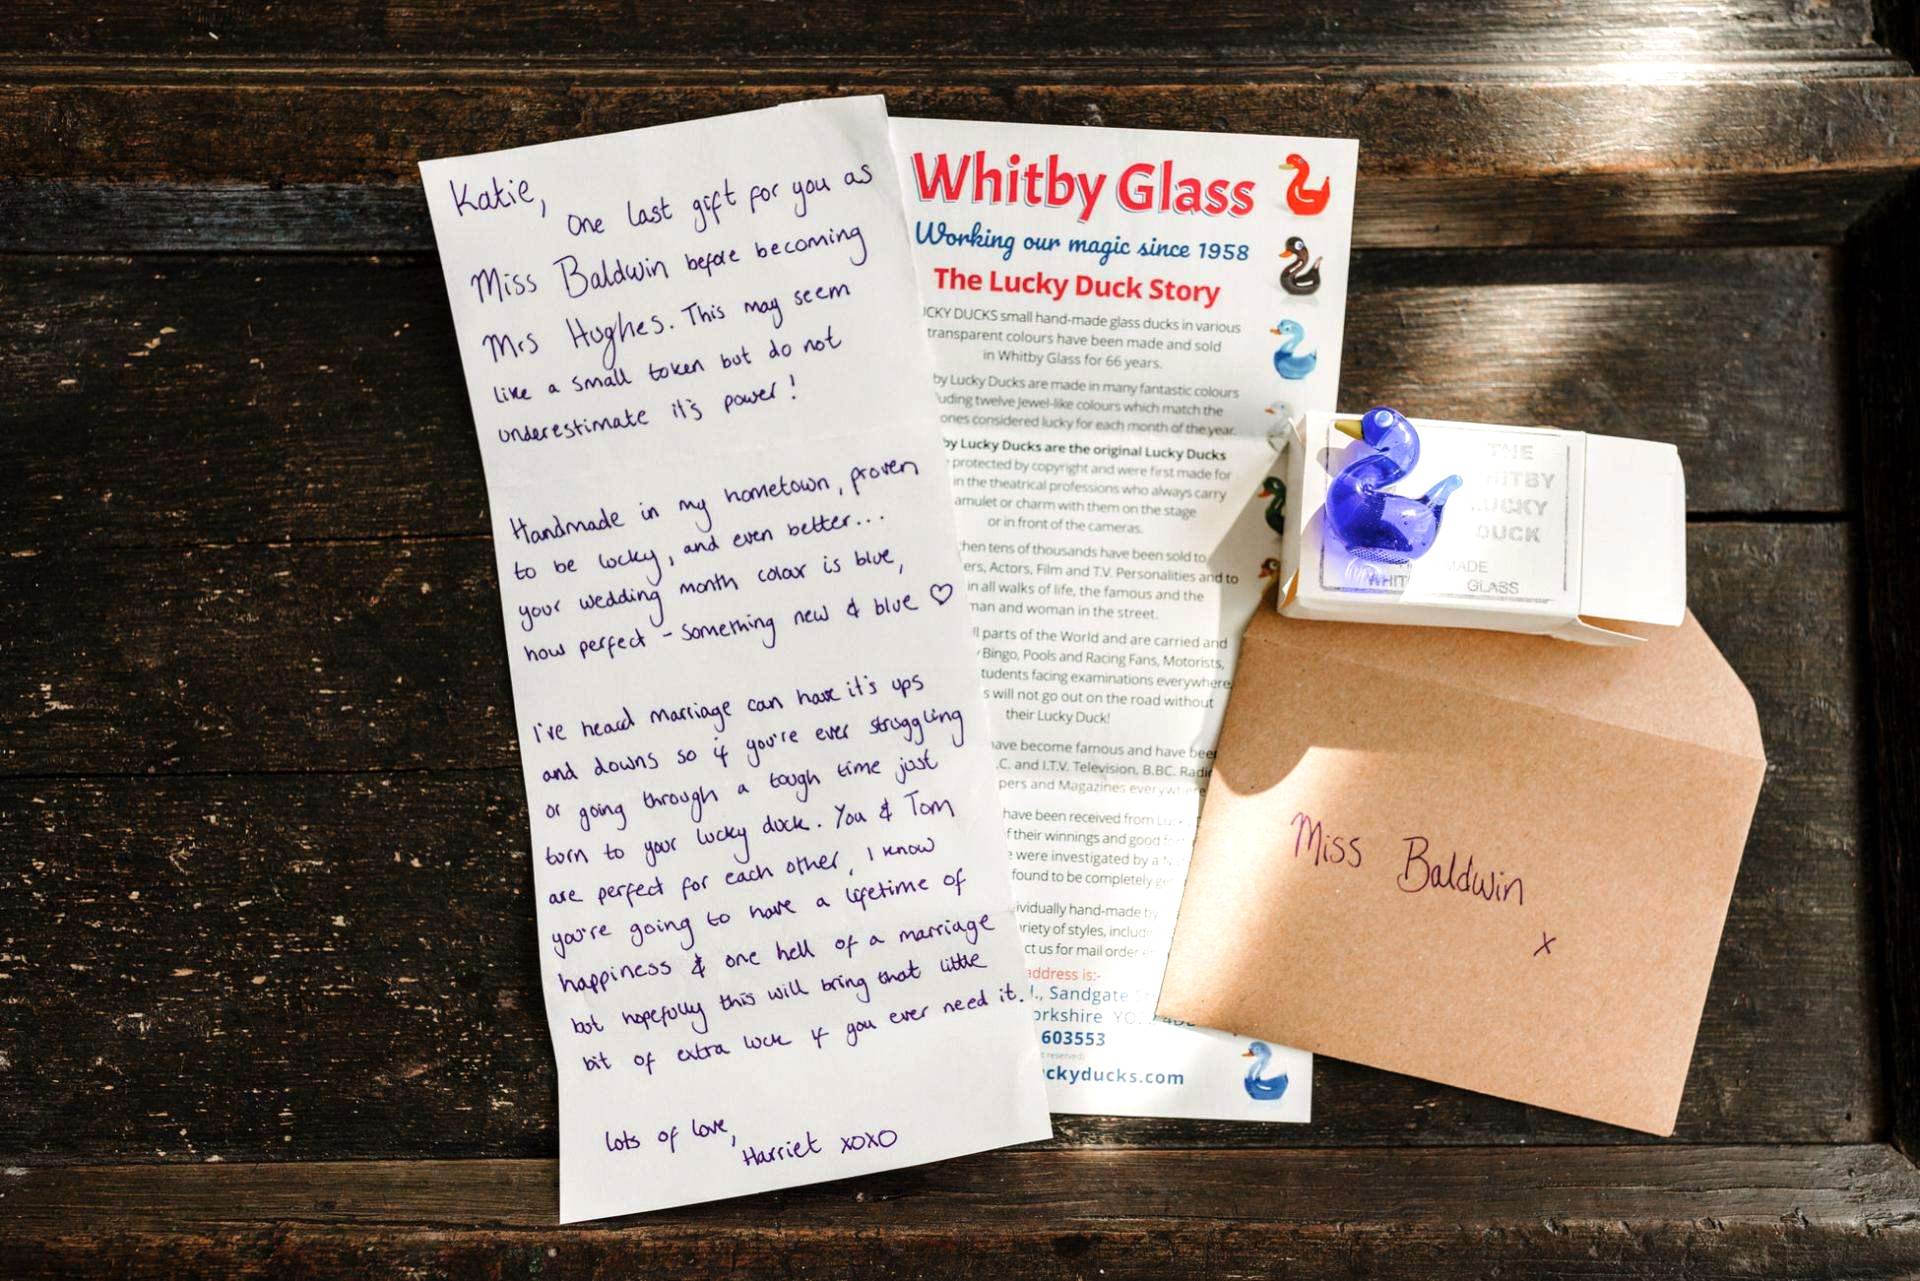 Katie,
One last gift for you as
Miss Baldwin before becoming
Mrs Hughes. This may seem
like a small token but do not
underestimate it's power!
Handmade in my hometown, proven
to be lucky, and even better...
your wedding month colour is blue,
how perfect - Something new & blue ♡
I've heard marriage can have it's ups
and downs so if you're ever struggling
or going through a tough time just
turn to your lucky duck. You & Tom
are perfect for each other, I know
you're going to have a lifetime of
happiness & one hell of a marriage
but hopefully this will bring that little
bit of extra luck if you ever need it.
lots of love,
Harriet xoxo
Whitby Glass
Working our magic since 1958
The Lucky Duck Story
CKY DUCKS small hand-made glass ducks in various
transparent colours have been made and sold
in Whitby Glass for 66 years.
by Lucky Ducks are made in many fantastic colours
uding twelve Jewel-like colours which match the
ones considered lucky for each month of the year.
by Lucky Ducks are the original Lucky Ducks
protected by copyright and were first made for
in the theatrical professions who always carry
amulet or charm with them on the stage
or in front of the cameras.
hen tens of thousands have been sold to
ers, Actors, Film and T.V. Personalities and to
in all walks of life, the famous and the
man and woman in the street.
ll parts of the World and are carried and
Bingo, Pools and Racing Fans, Motorists,
tudents facing examinations everywhere
s will not go out on the road without
their Lucky Duck!
ave become famous and have been
.C. and I.T.V. Television, B.B.C. Radio
pers and Magazines everywhere
have been received from
f their winnings and good
were investigated by a
found to be completely
ividually hand-made by
riety of styles, includi
ct us for mail order
address is:-
Sandgate
orkshire
603553
ckyducks.com
THE
WHITBY
LUCKY
DUCK
MADE
WHIT GLASS
Miss Baldwin
x